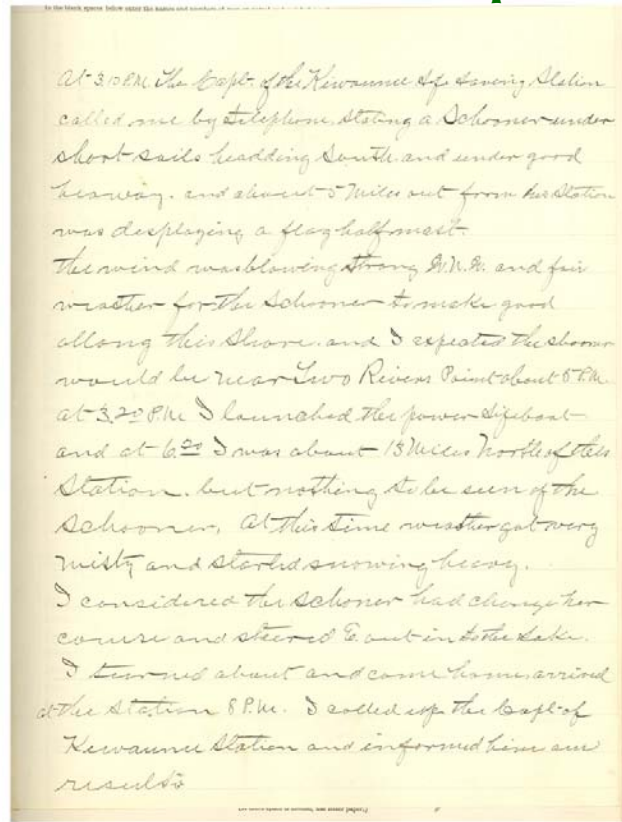 In the blank spaces below enter the names and numbers of
At 3.10 P.M. The Capt. of the Kewaunee Life Saving Station
called me by telephone, stating a Schooner under
short sails headding South. and under good
heaway. and about 5 Miles out from his Station
was desplaying a flag half mast.
the wind was blowing strong W.N.W. and fair
wrather for the Schooner to make good
allong this Shore. and I expected the shooner
would be near Two Rivers Point about 5 P.M.
at 3.20 P.M. I launched the power Lifeboat
and at 6.20 I was about 13 Miles North of this
Station. but nothing to be seen of the
Schooner. At this time wrather got very
misty and started snowing heavy.
I considered the Schoner had change her
course and steered E. out in to the Lake.
I tourned about and come home. arrived
at the Station 8 P.M. I called up the Capt. of
Kewaunee Station and informed him am
results